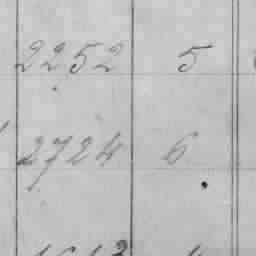 2252 5
2724 6